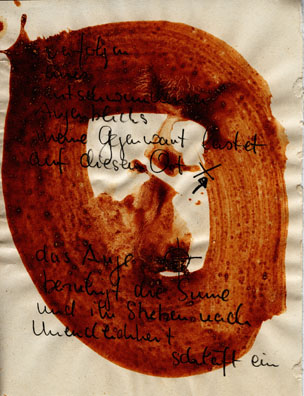 Augenblicks
meine Gegenwart lastet
auf diesen Ort
das Auge
beruhigt die Sinne
und ihr Streben nach
Unendlichkeit
schläft ein